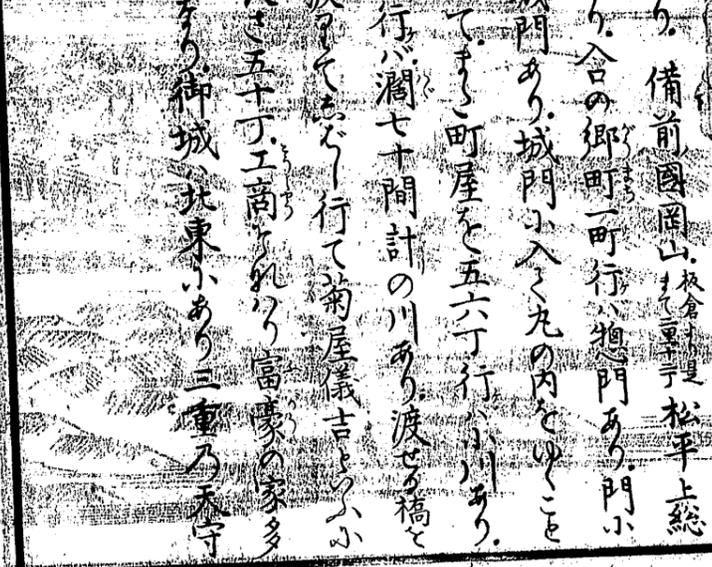 り。備前國岡山。板倉より是まで二里十二丁松平上総
り。入口の郷町一町行ケバ惣門あり。門に
城門あり。城門に入て丸の内をゆくこと
て。また町屋を五六丁行ケバ小川あり。
行ケバ。濶七十間計の川あり。渡せる橋を
渡りてしばし行て菊屋儀吉といふに
さ五十丁。工商も賑はり富豪の家多
なり。御城ハ北東にあり三重乃天守